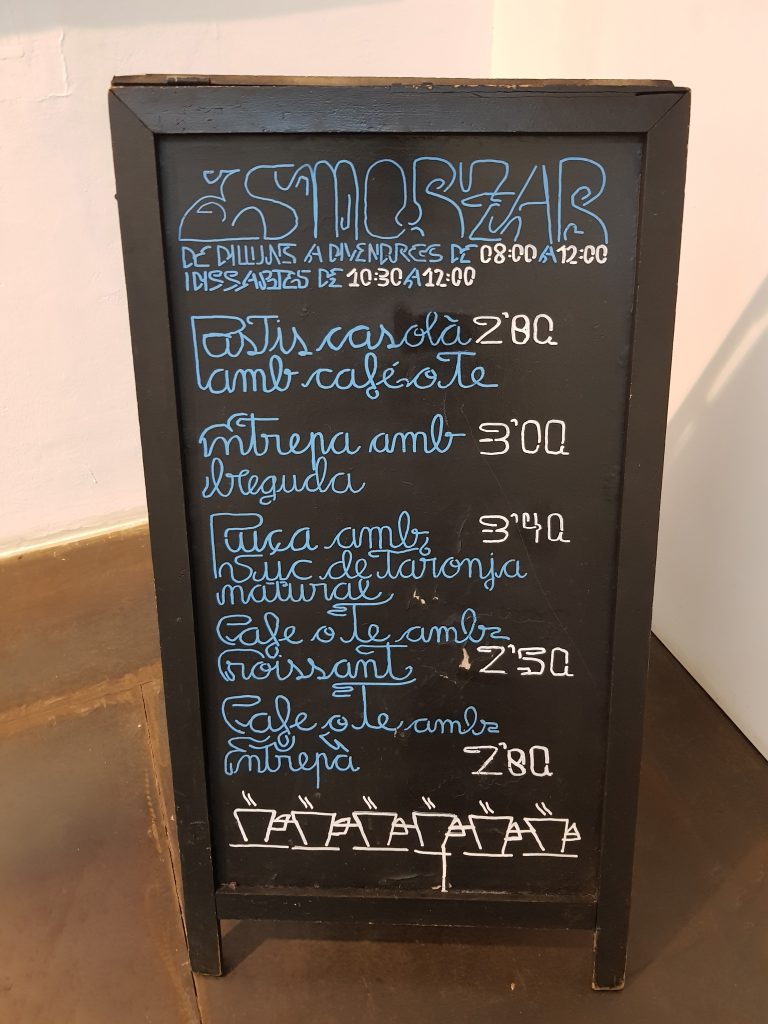 ESMORZAR
DE DILLUNS A DIVENDRES DE 08:00 A 12:00
I DISSABTES DE 10:30 A 12:00
Pastis casolà 2'80
amb café o te
Entrepa amb 3'00
beguda
Puça amb 3'40
suc de taronja
natural
Cafe o te amb
Croissant 2'50
Cafe o te amb
Entrepà 2'80